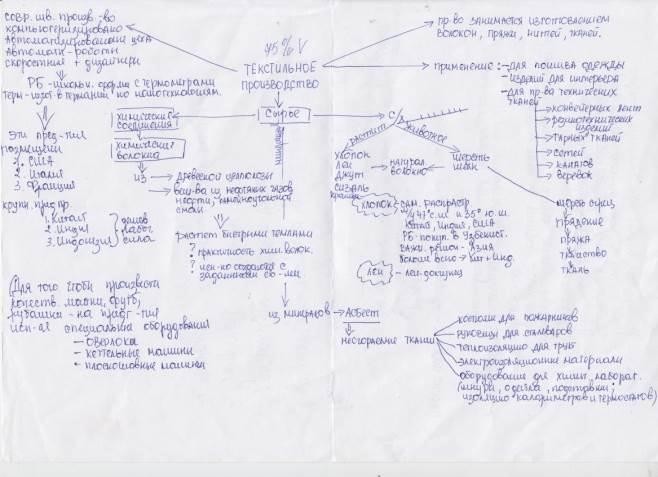 совр. шв. произв-во
компьютеризировано
Автоматизированный цеха
Автомат.-роботы
скоростные + дизайнери
РБ
с термограми
терм-изгот. в Германии по нанотехнологиям.
Эти пред-тия
размещены
1. США
2. Италия
3. Франция
крупн. пр.
1. Китай
2. Индия
3. Индонезия
дешев.
рабоч.
сила
(Для того чтобы произвести
качеств. майки, футб,
рубашки - на предг-тия
исп-ся специальн оборудования
- оверлоки
- кеттельные машины
- плоскошовные машины
45% V
ТЕКСТИЛЬНОЕ
ПРОИЗВОДСТВО
СЫРЬЕ
химические
соединения
химические
волокна
из
древесной целлюлозы
вещ-ва из нефтяных газов
нефти, каменноугольной
смолы
растет быстрыми темпами
? практичность хим. волок.
?
заданными св-ми
минерал
из минералов
Асбест
несгораемые ткани
костюмы для пожарников
рукавицы для сталеваров
теплоизоляцию для труб
электроизоляционные материалы
оборудование для химич. лаборат.
(шнуры, одеяла, подставки,
изоляцию калориметров и термостатов)
пр-во занимается изготовлением
волокон, пряжи, нитей, тканей.
применение:
- для пошива одежды
- изделий для интерьера
- для пр-ва технических
тканей
конвейерных лент
резинотехнических
изделий
тарных тканей
сетей
канатов
веревок
с/х
растит
животное
хлопок
лен
джут
сизаль
натурал.
волокно
шерсть
шелк
хлопок
- сам. распростр.
47° с.ш и 35° ю.ш.
Китай, Индия, США
РБ-покуп. в Узбекист.
важн. регион - Азия
Больше всего → Кит + Инд.
лен
шерсть
прядение
пряжа
ткачество
ткань